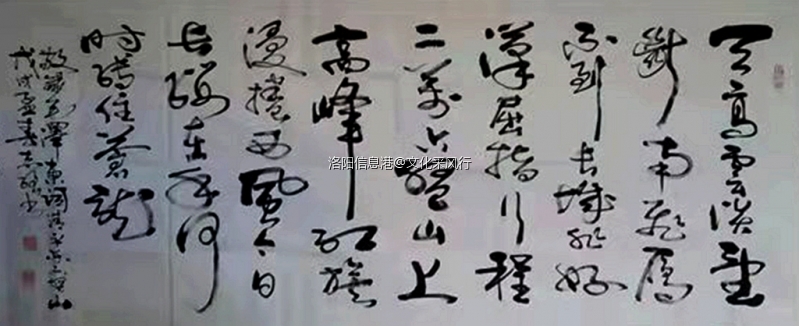 天高云淡望
断南飞雁
不到长城非好
汉屈指行程
二万六盘山上
高峰红旗
漫捲西风今日
长缨在手何
时缚住苍龙
敬录毛泽东词清平乐六盘山
戊戌孟春
洛阳信息港@文化采风行